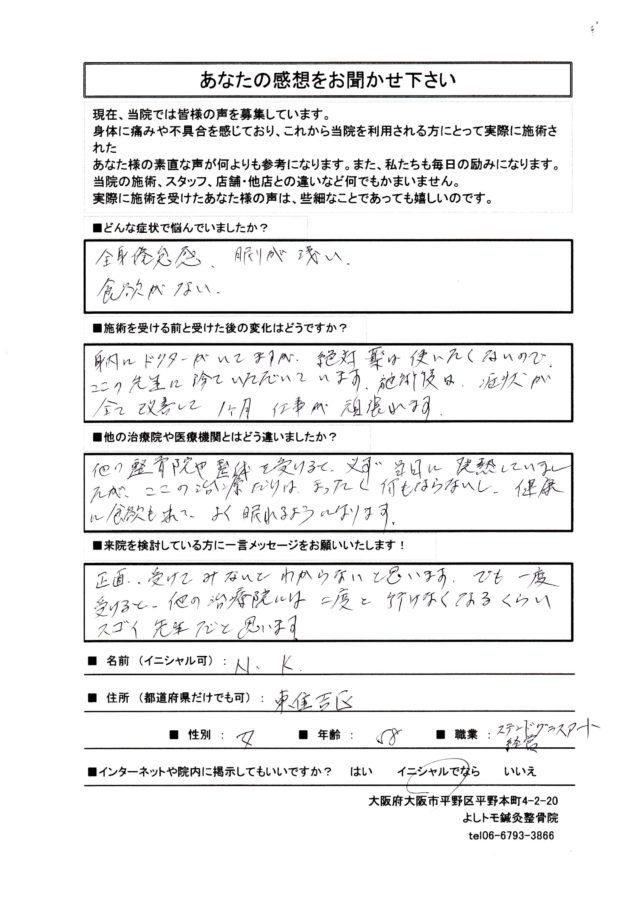 あなたの感想をお聞かせ下さい
現在、当院では皆様の声を募集しています。
身体に痛みや不具合を感じており、これから当院を利用される方にとって実際に施術さ
れた
あなた様の素直な声が何よりも参考になります。また、私たちも毎日の励みになります。
当院の施術、スタッフ、店舗・他店との違いなど何でもかまいません。
実際に施術を受けたあなた様の声は、些細なことであっても嬉しいのです。
■どんな症状で悩んでいましたか？
全身倦怠感、眠りが浅い、
食欲がない、
■施術を受ける前と受けた後の変化はどうですか？
身内にドクターがいてますが、絶対薬は使いたくないので、
ここの先生に診ていただいています。施術後は、症状が
全て改善して 1ヶ月 仕事が頑張れます。
■他の治療院や医療機関とはどう違いましたか？
他の整骨院や整体を受けると、必ず当日に発熱していまし
たが、ここの治療だけは、まったく何もならないし、健康
に食欲も出て、よく眠れるようになります。
■来院を検討している方に一言メッセージをお願いいたします！
正直、受けてみないとわからないと思います。でも一度
受けると、他の治療院には二度と行けなくなるくらい
スゴイ先生だと思います
■ 名前（イニシャル可）：N. K.
■ 住所（都道府県だけでも可）：東住吉区
■ 性別：女 ■ 年齢：58 ■ 職業：ステンドグラスアート
経営
■インターネットや院内に掲示してもいいですか？ はい イニシャルでなら いいえ
大阪府大阪市平野区平野本町4-2-20
よしトモ鍼灸整骨院
tel06-6793-3866